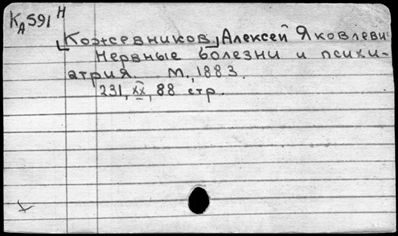 КА591 Н
Кожевников, Алексей Яковлеви
Нервные болезни и психи-
атрия. М., 1883.
231, XX, 88 стр.